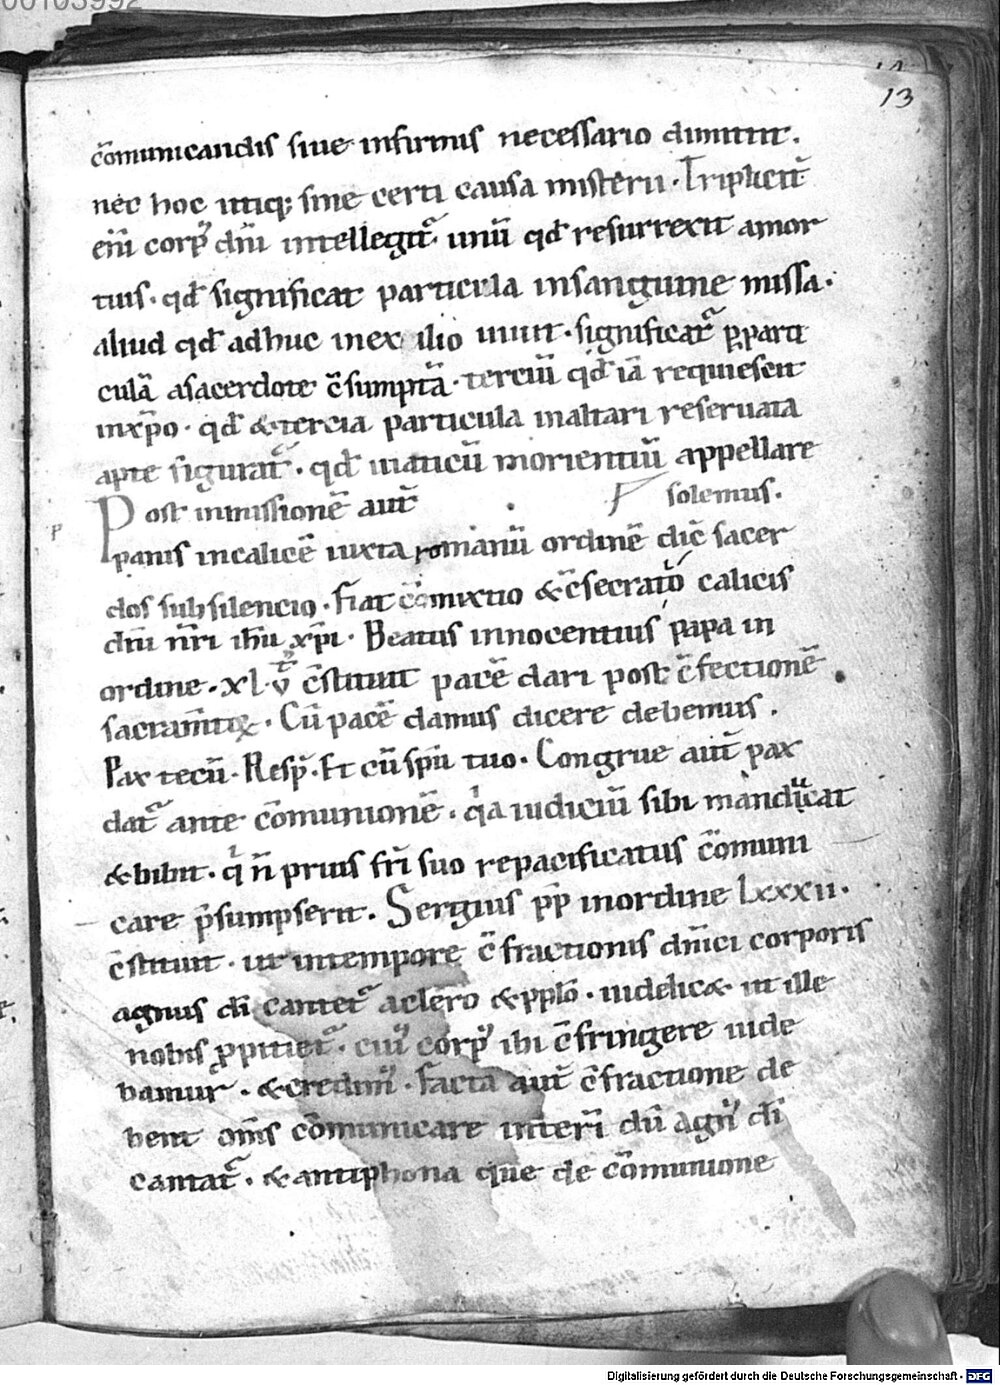 00103992
13
c̄omunicandis siue infirmis necessario dimittit.
nec hoc utiq; sine certi causa misterii. Triplicit̄
eni͂ corp᷒ dm̄i intellegit᷑. unū qd̄ resurrexit amor
tuis. qd̄ significat particula insanguine missa.
aliud qd̄ adhuc inexilio uiuit. significat᷑ p̱parti
culā asacerdote c̄sumptā. terciū qd̄ iā requiescit
inxp̄o. qd̄ & tercia particula inaltari reseruata
apte figurat᷑. qd̄ uiaticū morientiū appellare
solemus.
Post inmissionē aut̄
panis incalicē iuxta romanū ordinē dic̄ sacer
dos subsilencio. fiat c̄omixtio & c̄secratio calicis
dn̄i nr̄i ih̄u xp̄i. Beatus innocentius papa in
ordine. xl.v̄ c̄stituit pacē dari post c̄fectionē
sacram̄tiꝝ. Cū pacē damus dicere debemus.
Pax tecū. Resp̄. Et cū sp̄u tuo. Congrue aut̄ pax
dat᷑ ante c̄omunionē. qͥa iudiciū sibi manducat
& bibit. qͥ n̄ prius fr̄i suo repacificatus c̄omuni
care p̄sumpserit. Sergius pp̄ inordine lxxxii.
c̄stituit. ut intempore c̄fractionis dn̄ici corporis
agnus dī cantet᷑ aclero & pplō. uidelic& ut ille
nobis ꝓpitiet᷑. cui᷒ corp᷒ ibi c̄fringere uide
bamur. & credim᷒. facta aut̄ c̄fractione de
bent om̄s c̄omunicare interī dū agn᷒ dī
cantat᷑. & antiphona que de c̄omunione
Digitalisierung gefördert durch die Deutsche Forschungsgemeinschaft - DFG